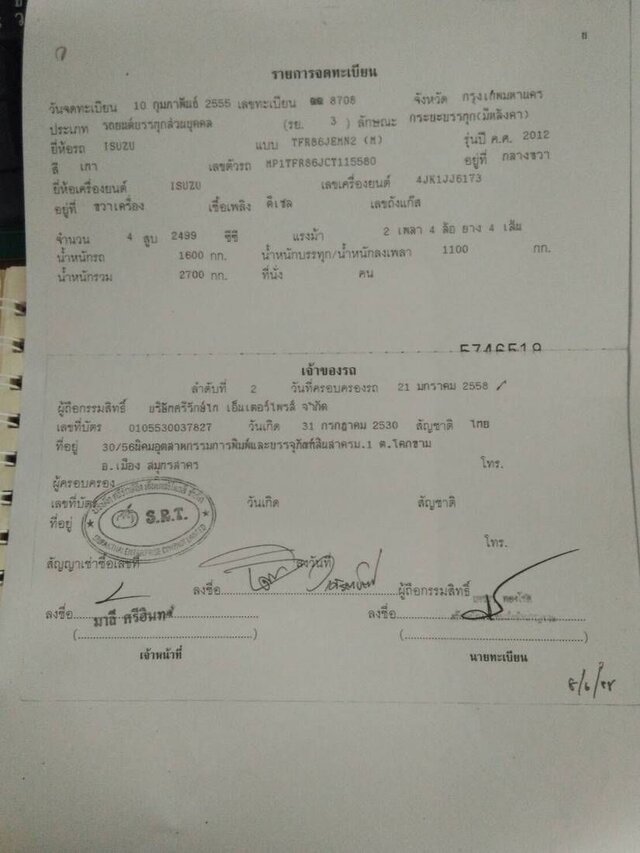 รายการจดทะเบียน
วันจดทะเบียน 10 กุมภาพันธ์ 2555 เลขทะเบียน 8708 จังหวัด กรุงเทพมหานคร
ประเภท รถยนต์บรรทุกส่วนบุคคล (รย. 3 ) ลักษณะ กระบะบรรทุก(มีหลังคา)
ยี่ห้อรถ ISUZU แบบ TFR86JEMN2 (M) รุ่นปี ค.ศ. 2012
สี เทา เลขตัวรถ MP1TFR86JCT115580 อยู่ที่ กลางขวา
ยี่ห้อเครื่องยนต์ ISUZU เลขเครื่องยนต์ 4JK1JJ6173
อยู่ที่ ขวาเครื่อง เชื้อเพลิง ดีเซล เลขถังแก๊ส
จำนวน 4 สูบ 2499 ซีซี แรงม้า 2 เพลา 4 ล้อ ยาง 4 เส้น
น้ำหนักรถ 1600 กก. น้ำหนักบรรทุก/น้ำหนักลงเพลา 1100 กก.
น้ำหนักรวม 2700 กก. ที่นั่ง คน
5746519
เจ้าของรถ
ลำดับที่ 2 วันที่ครอบครองรถ 21 มกราคม 2558
ผู้ถือกรรมสิทธิ์ บริษัทศรีรักษ์ไท เอ็นเตอร์ไพรส์ จำกัด
เลขที่บัตร 0105530037827 วันเกิด 31 กรกฎาคม 2530 สัญชาติ ไทย
ที่อยู่ 30/56นิคมอุตสาหกรรมการพิมพ์และบรรจุภัณฑ์สินสาครม.1 ต.โคกขาม
อ.เมือง สมุทรสาคร โทร.
ผู้ครอบครอง
เลขที่บัตร วันเกิด สัญชาติ
ที่อยู่ S.R.T.
โทร.
สัญญาเช่าซื้อเลขที่ ลงวันที่
ลงชื่อ ผู้ถือกรรมสิทธิ์
ลงชื่อ มาลี ศรีอินทร์ ลงชื่อ
เจ้าหน้าที่ นายทะเบียน